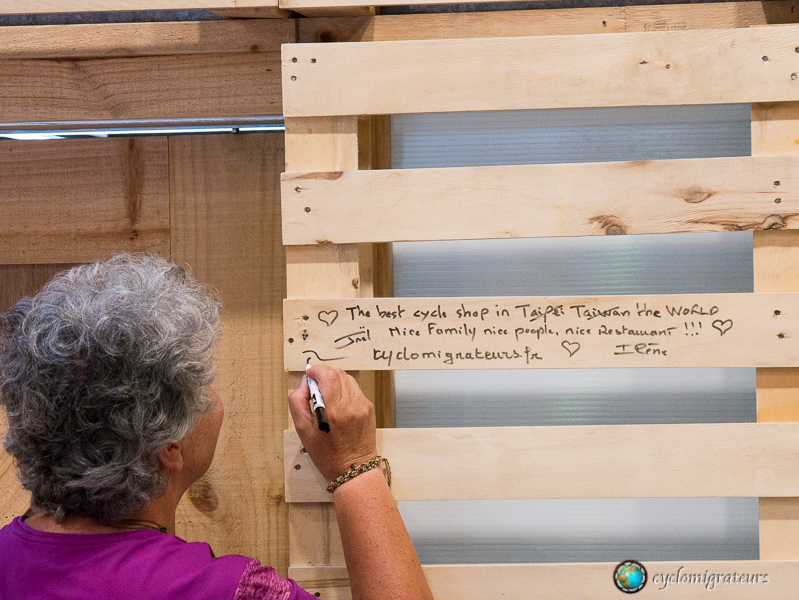 The best cycle shop in Taipei Taiwan the WORLD
Joël Nice Family nice people, nice Restaurant !!!
cyclomigrateurs.fr Irène
cyclomigrateurs